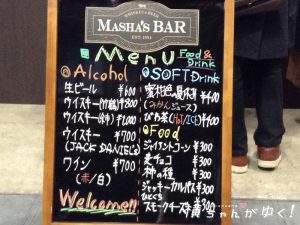 MASHA'S BAR
EST. 1994
Menu
Food &
Drink
@Alcohol
生ビール ¥600
ウイスキー(竹鶴) ¥800
ウイスキー(余市) ¥1,000
ウイスキー ¥700
(JACK DANIEL'S)
ワイン ¥700
(赤/白)
Welcome!!
@SOFT Drink
(みかんジュース) ¥400
びわ茶(HOT/ICE) ¥100
@Food
ジャイアントコーン ¥300
麦チョコ ¥300
柿の種 ¥300
ジャッキーカルパス ¥300
ひとくち
スモークチーズ ¥300
ちゃんがゆく!